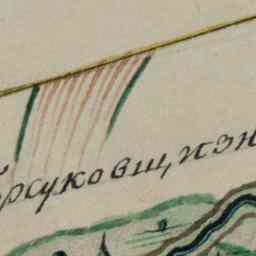 рсуковщизн